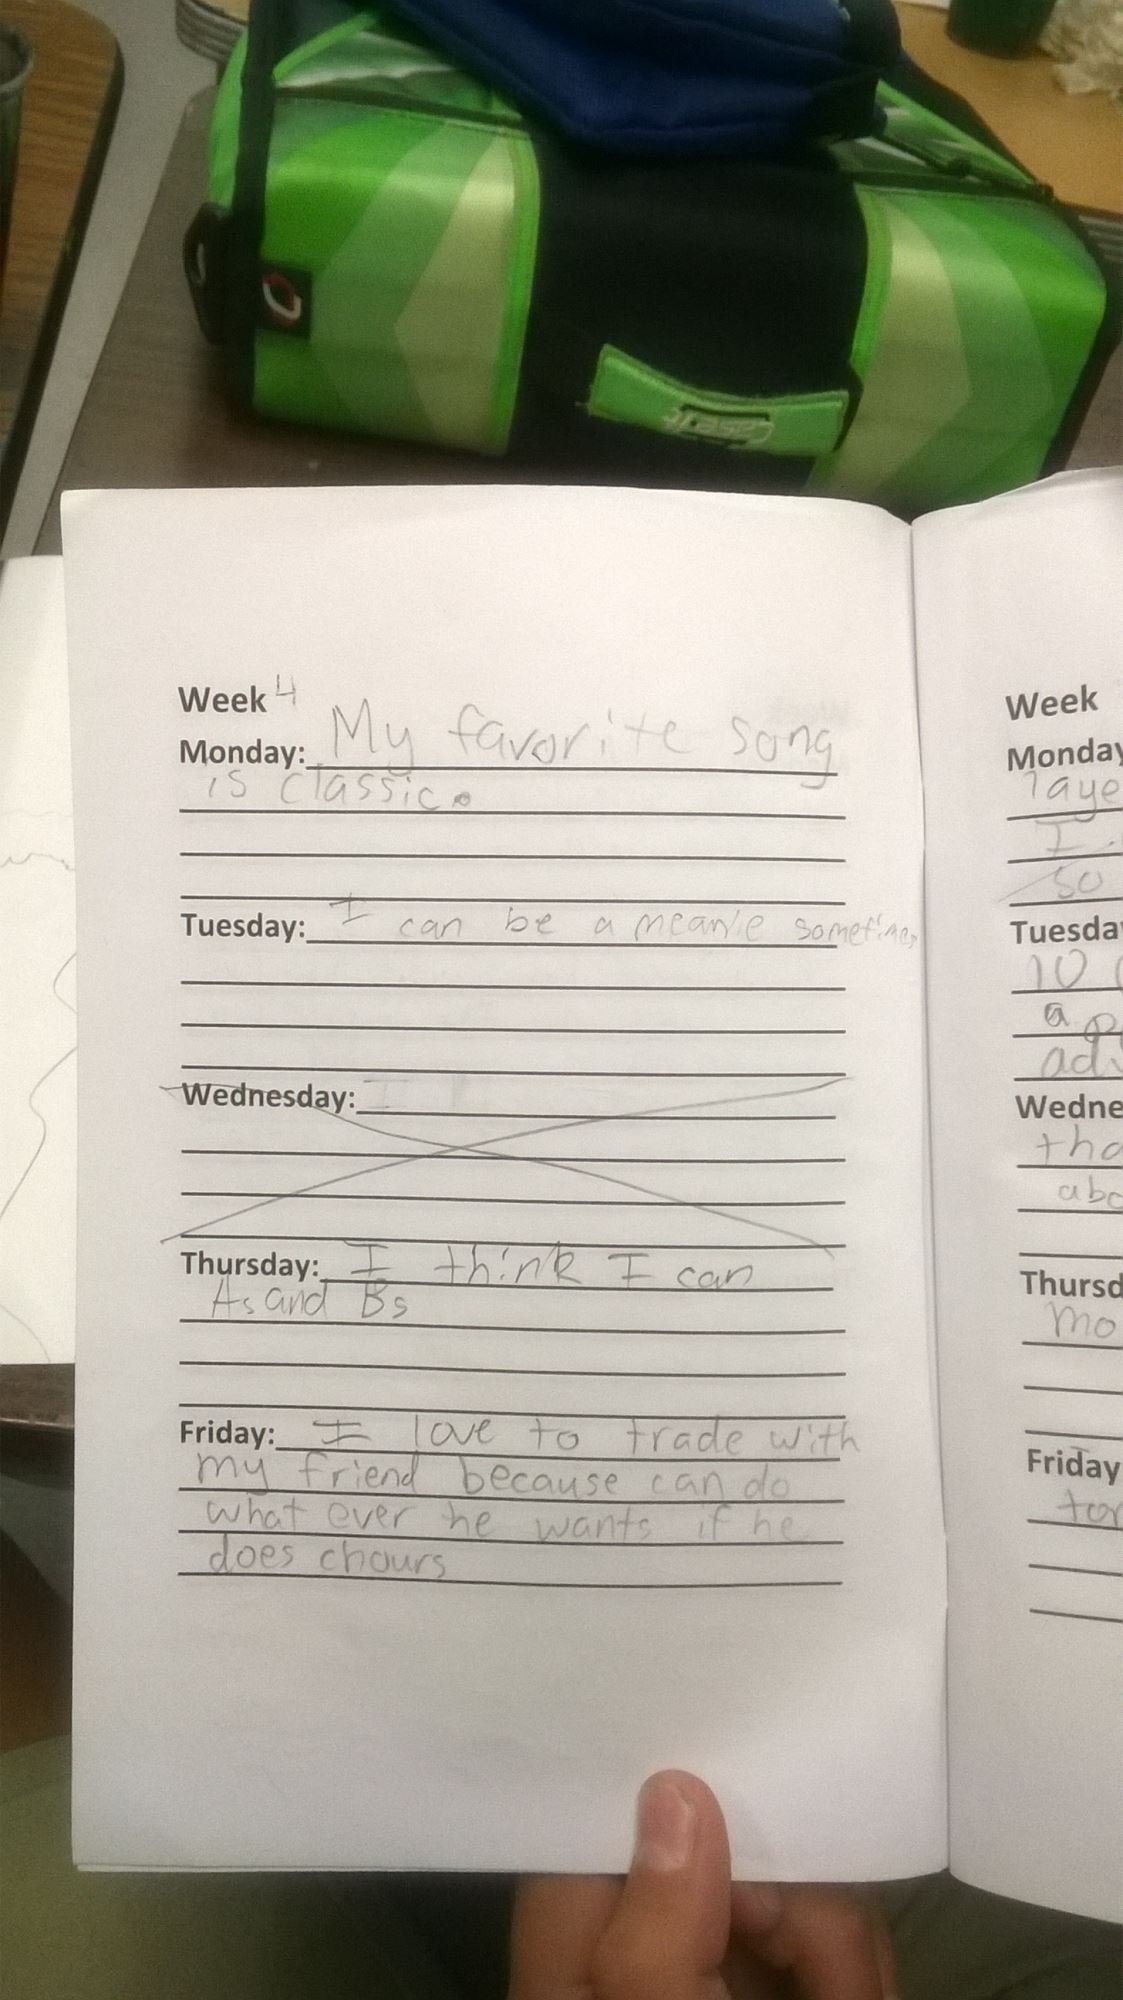 Case it
Week 4
Monday: My favorite song
is classic.
Tuesday: I can be a meanie sometimes
Wednesday: I
Thursday: I think I can
As and Bs
Friday: I love to trade with
my friend because can do
what ever he wants if he
does chours
Week
Monday
laye
I
so
Tuesda
10
a
adv
Wedne
tha
abo
Thursd
mo
Friday
tor